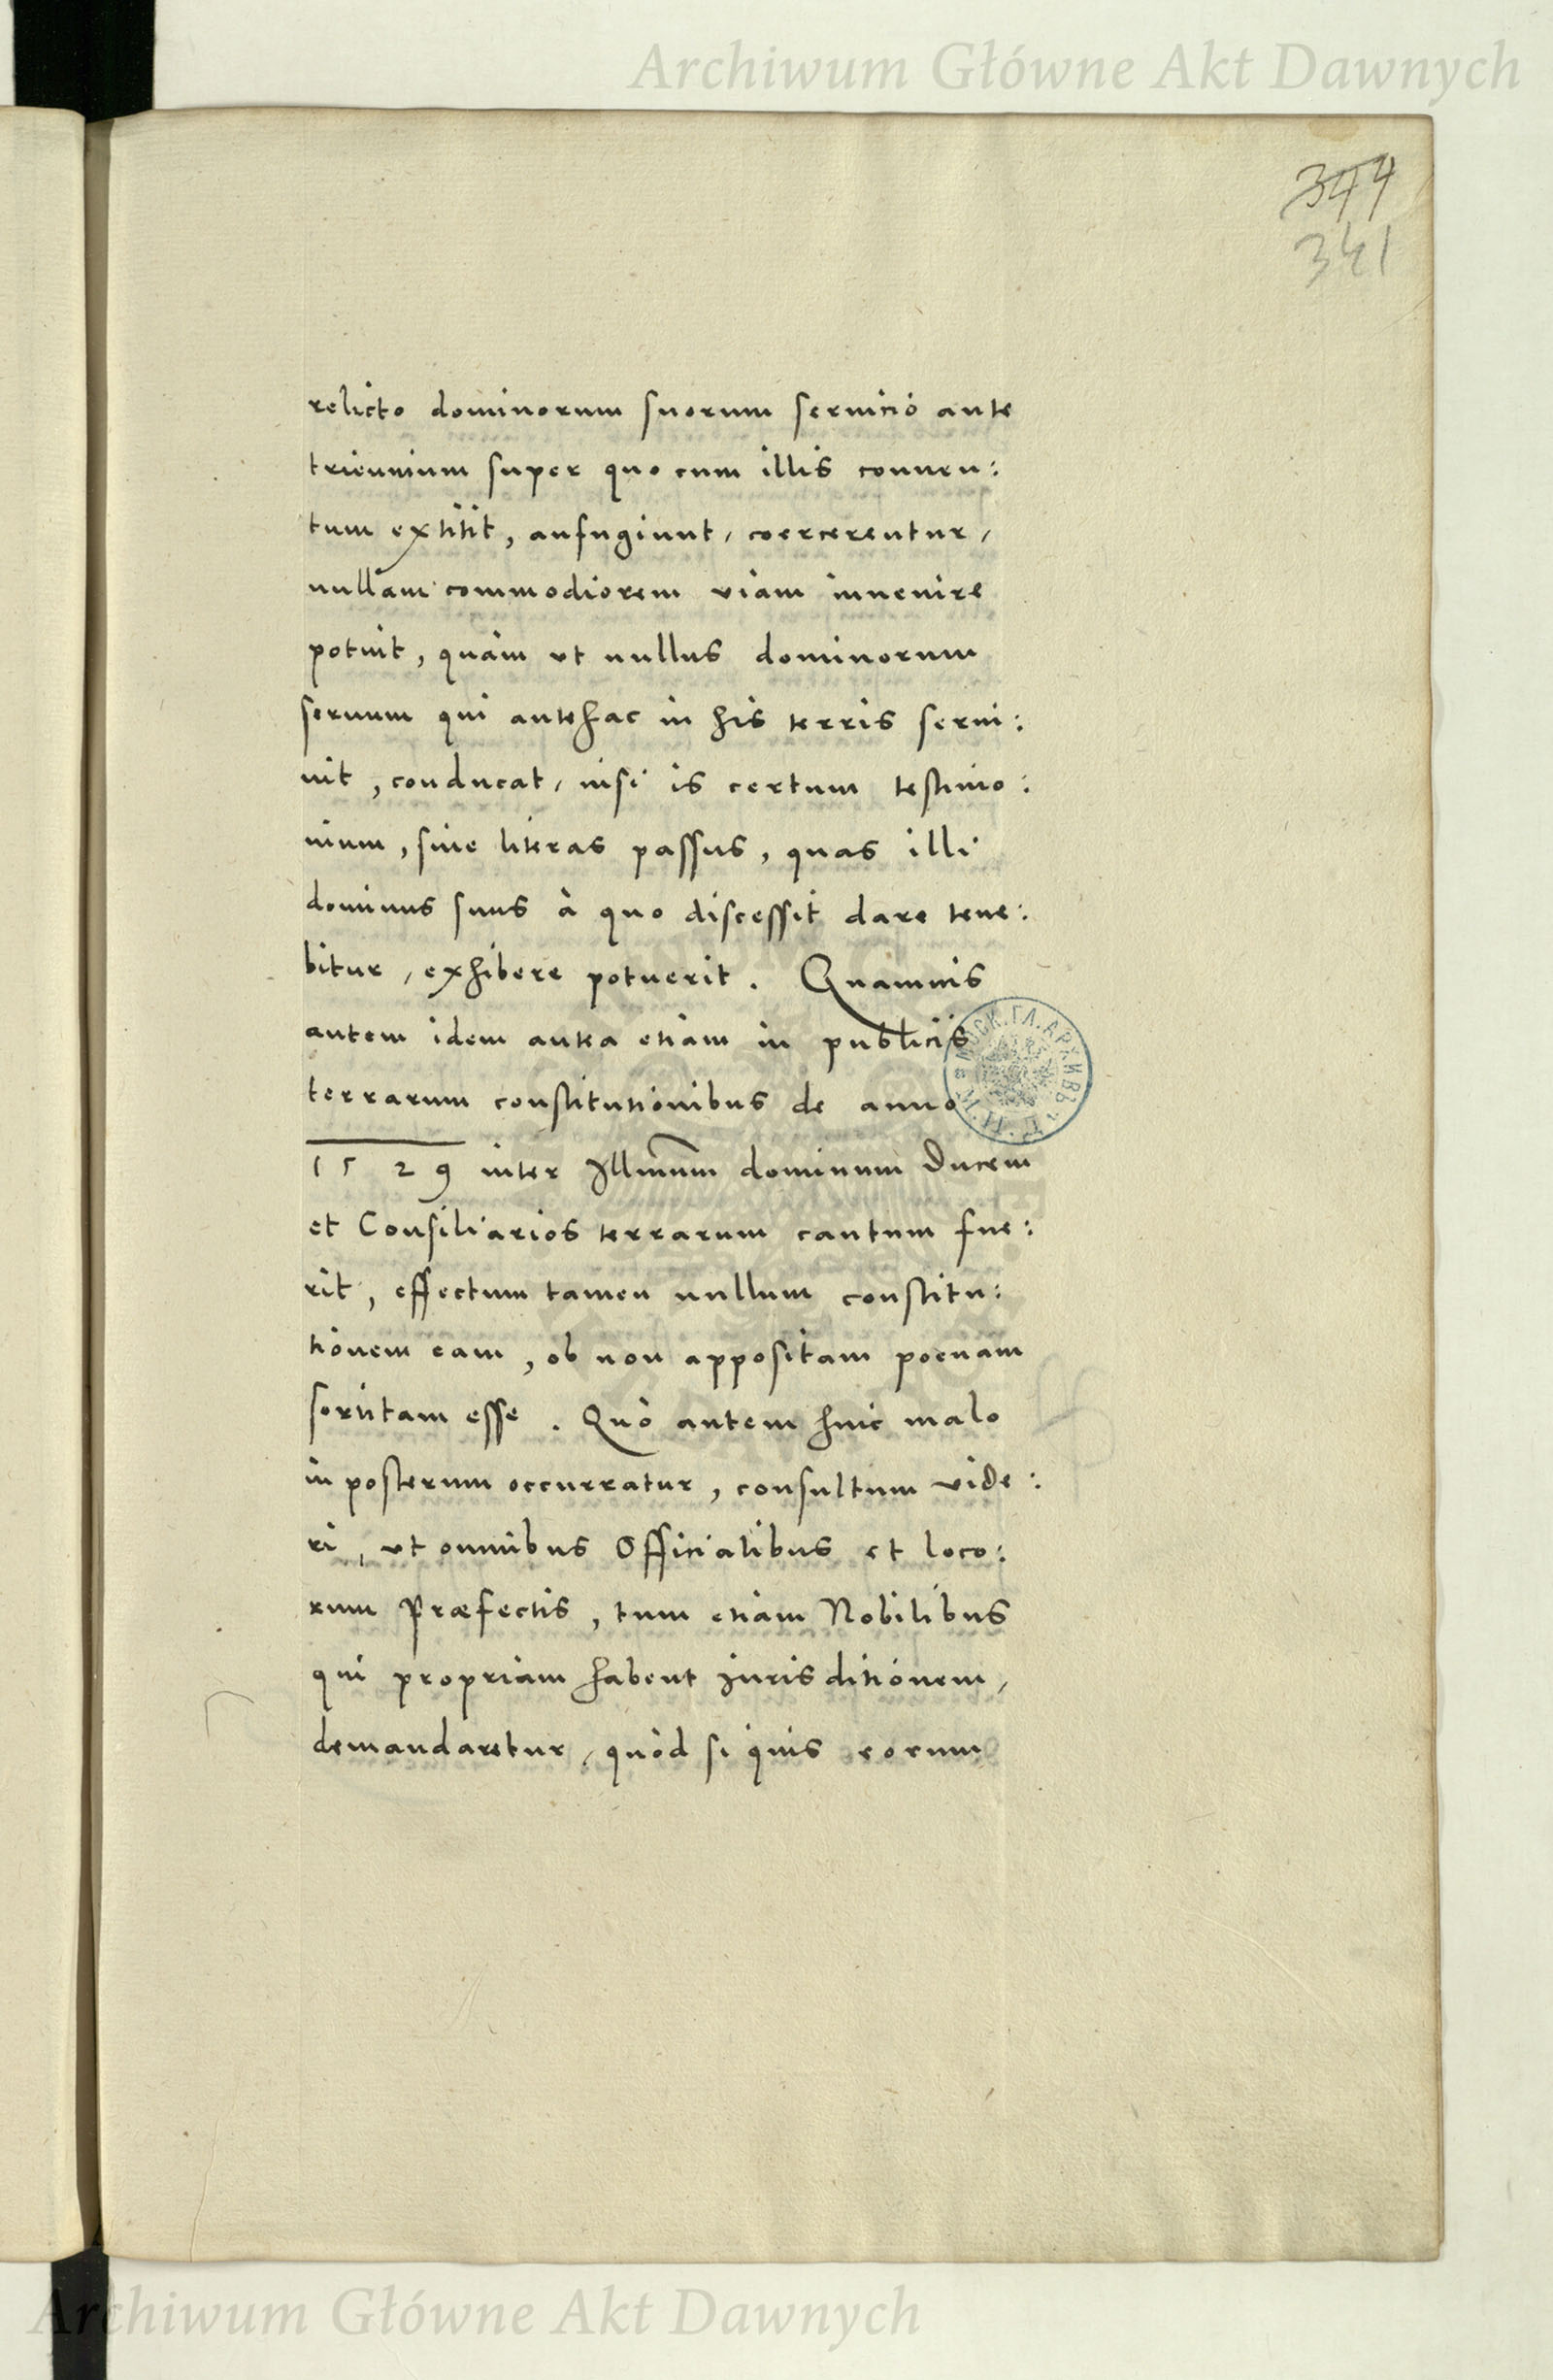 Archiwum Główne Akt Dawnych
344
341
relicto dominorum suorum seruicio ante
triennium super quo cum illis conuen:
tum extitit, aufugiunt, coercerentur,
nullam commodiorem viam inuenire
potuit, quàm vt nullus dominorum
seruum qui antehac in his terris serui:
uit, conducat, nisi is certum testimo:
nium, siue literas passus, quas illi
dominus suus à quo discessit dare tene:
bitur, exhibere potuerit. Quamuis
autem idem antea etiam in publicis
terrarum constitutionibus de anno
1529 inter Illmum dominum Ducem
et Consiliarios terrarum cautum fue:
rit, effectum tamen nullum constitu:
tionem eam, ob non appositam poenam
sortitam esse. Quò autem huic malo
in posterum occurratur, consultum vide:
ri, vt omnibus Officialibus et loco:
rum Præfectis, tum etiam Nobilibus
qui propriam habent Iurisditionem,
demandaretur, quòd si quis eorum
Archiwum Główne Akt Dawnych